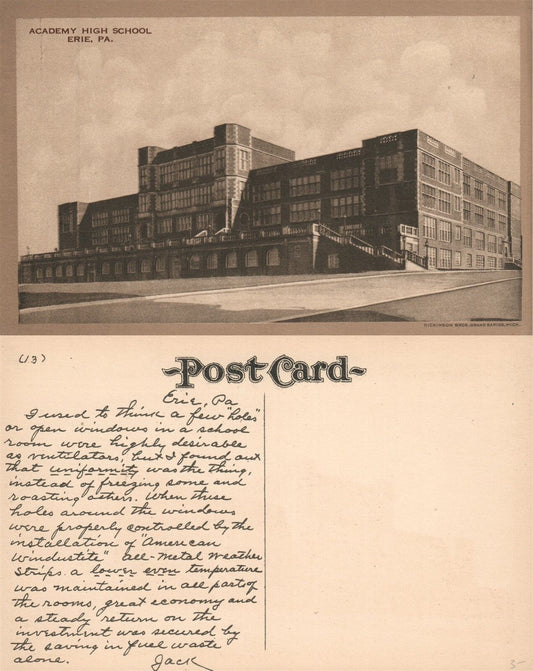 ACADEMY HIGH SCHOOL
ERIE, PA.
DICKINSON BROS., GRAND RAPIDS, MICH.
(13)
Post Card
Erie, Pa
I used to think a few "holes"
or open windows in a school
room were highly desirable
as ventilators, but I found out
that uniformity was the thing,
instead of freezing some and
roasting others. When these
holes around the windows
were properly controlled by the
installation of "American
Windustite" all-metal Weather
Strips a lower even temperature
was maintained in all parts of
the rooms, great economy and
a steady return on the
investment was secured by
the saving in fuel waste
alone.
Jack
5-